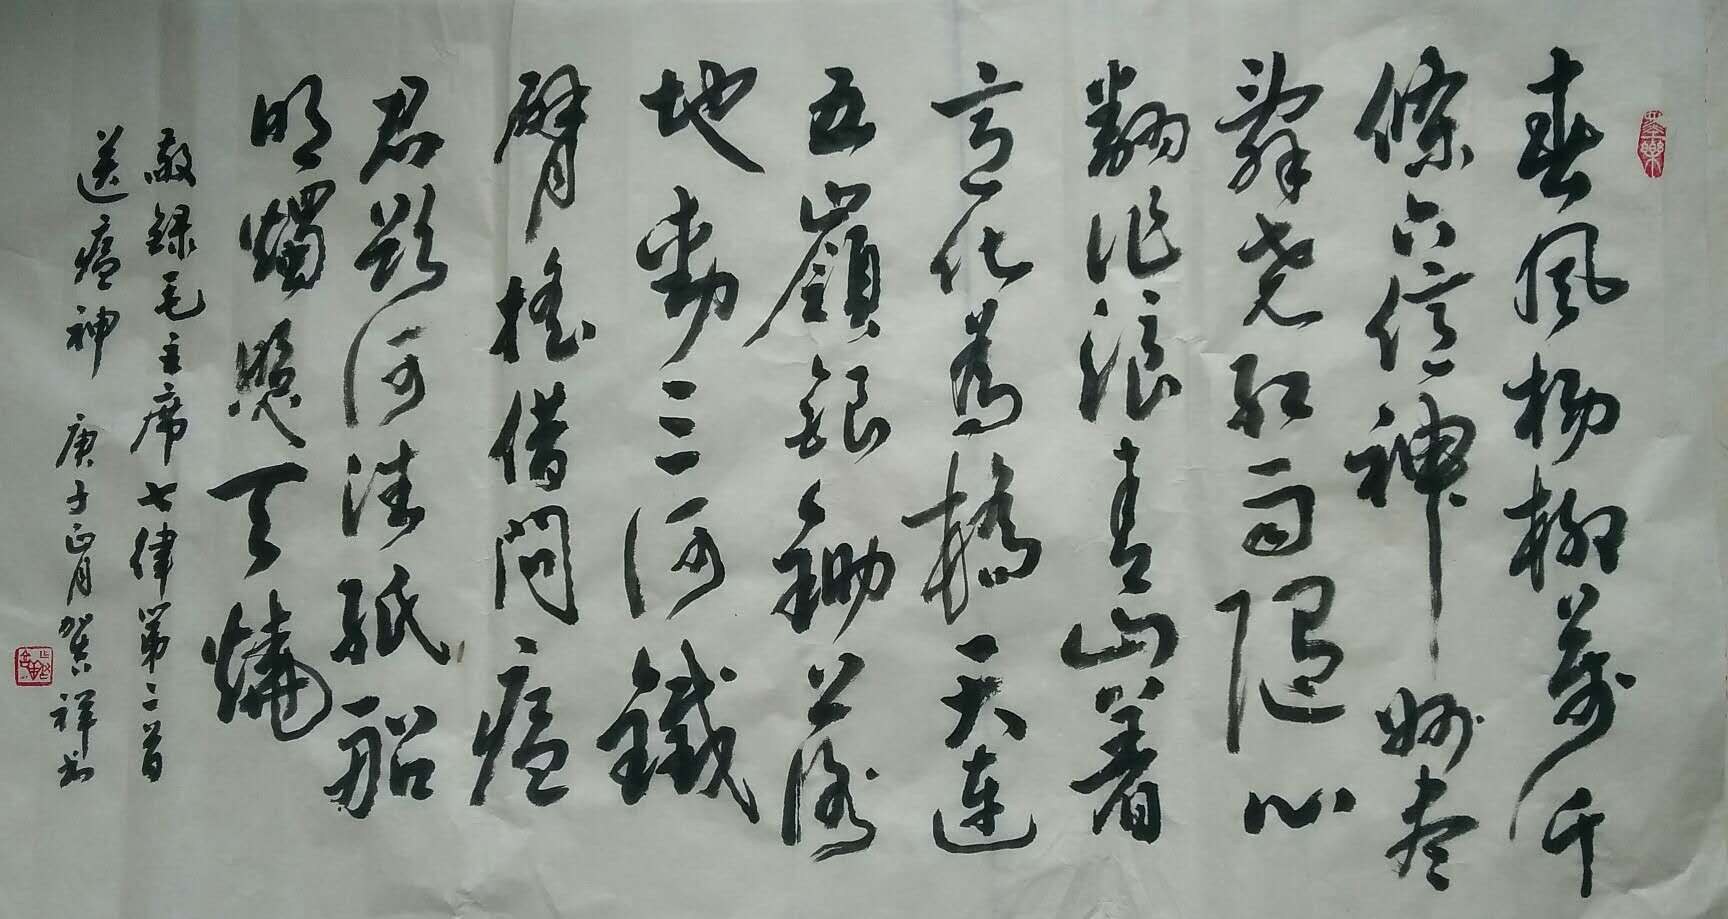 春風楊柳萬千
條六億神州盡
舜堯紅雨隨心
翻作浪青山着
意化為橋天連
五嶺銀鋤落
地動三河鐵
臂搖借問瘟
君欲何往紙船
明燭照天燒
敬録毛主席七律第二首
送瘟神 庚子正月賀祥书